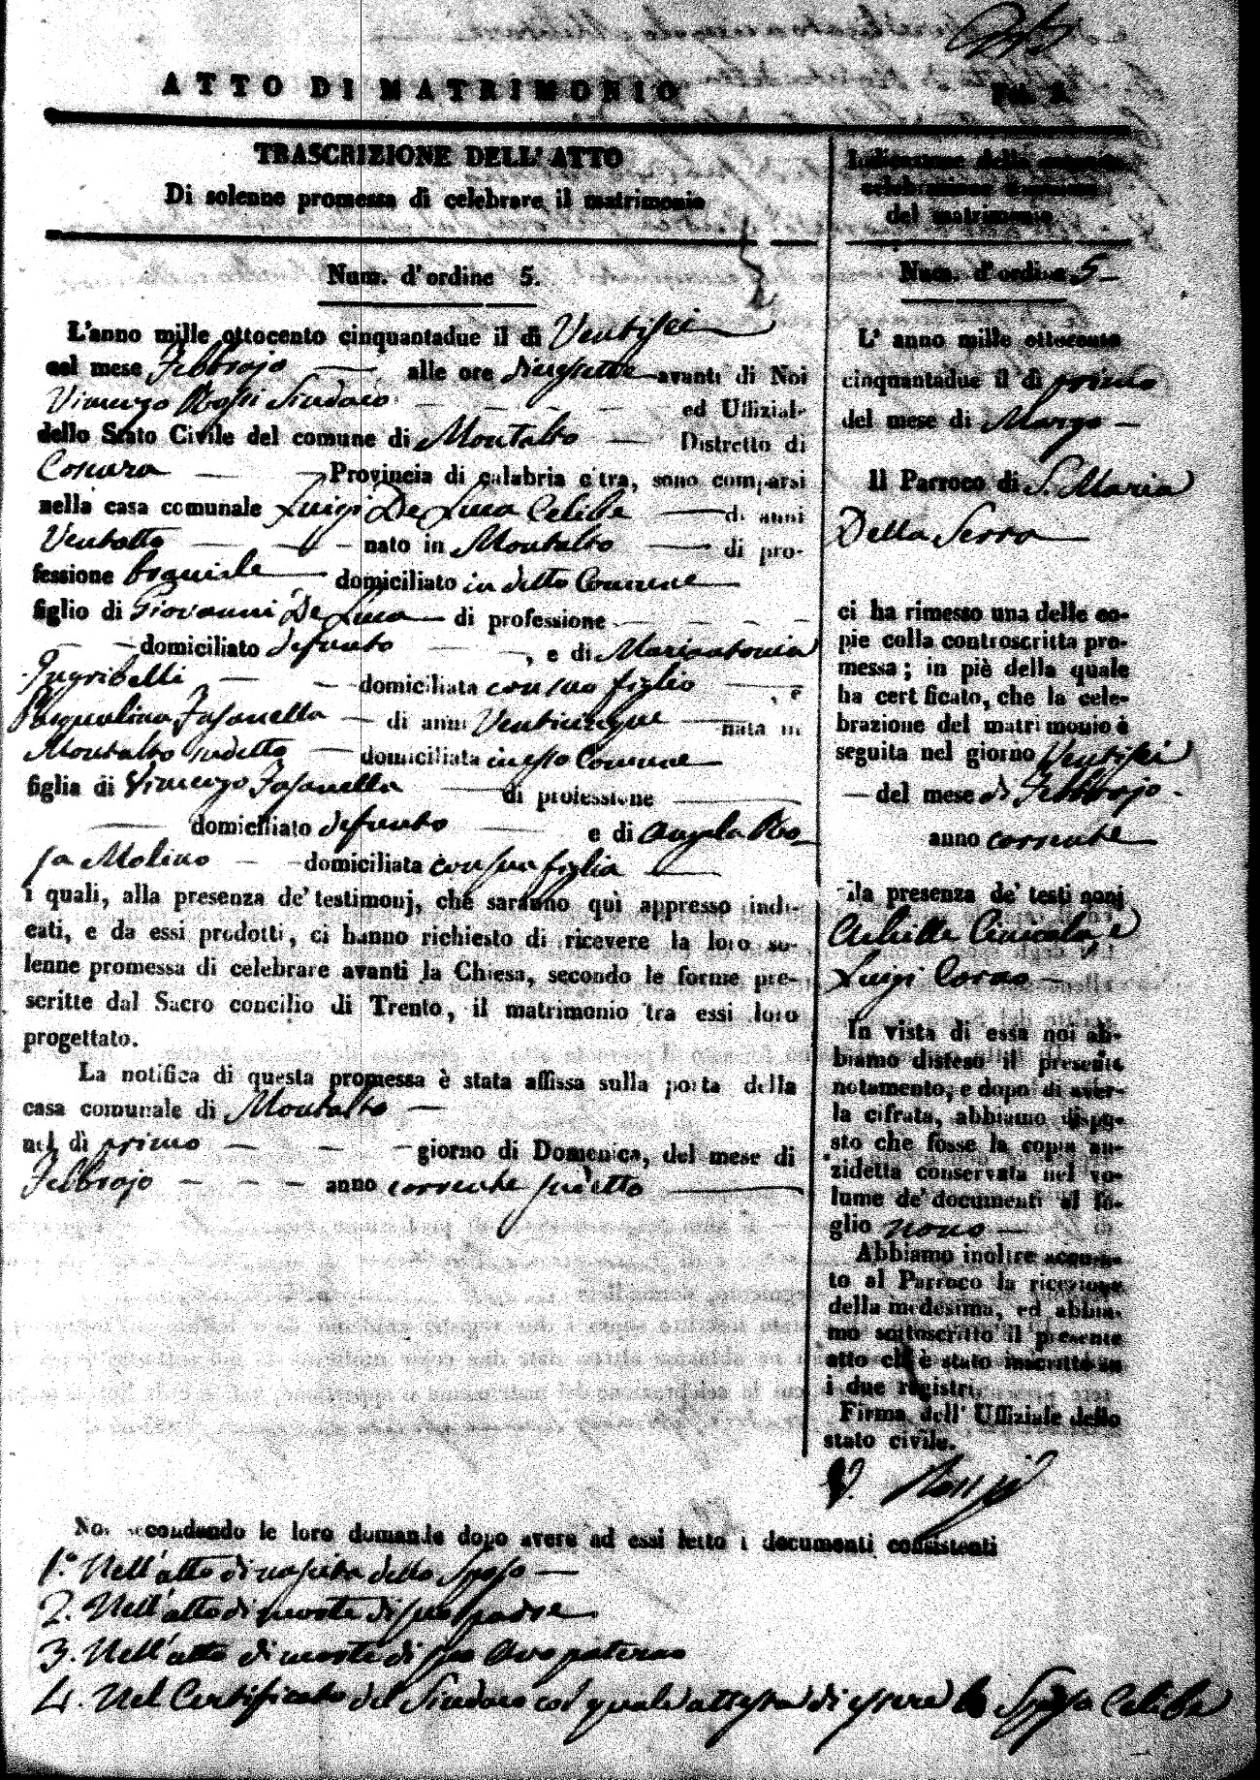 ATTO DI MATRIMONIO
TRASCRIZIONE DELL' ATTO
Di solenne promessa di celebrare il matrimonio
Num. d'ordine 5.
L'anno mille ottocento cinquantadue il dì Ventisei
nel mese Febbrajo alle ore diecisette avanti di Noi
Vincenzo Rossi Sindaco ed Uffizial-
dello Stato Civile del comune di Montalto Distretto di
Cosenza Provincia di calabria citra, sono comparsi
nella casa comunale Luigi De Luca Celibe di anni
Ventotto nato in Montalto di pro-
fessione domiciliato in detto Comune
figlio di Giovanni De Luca di professione
domiciliato defunto , e di Mariantonia
Ingribelli domiciliata con suo figlio , e
Pasqualina Fasanella di anni Venticinque nata in
Montalto sudetto domiciliata in esso Comune
figlia di Vincenzo Fasanella di professione
domiciliato defunto e di Angela Ro-
sa Molino domiciliata con sua figlia
i quali, alla presenza de' testimonj, che saranno quì appresso indi-
cati, e da essi prodotti, ci hanno richiesto di ricevere la loro so-
lenne promessa di celebrare avanti la Chiesa, secondo le forme pre-
scritte dal Sacro concilio di Trento, il matrimonio tra essi loro
progettato.
La notifica di questa promessa è stata affissa sulla porta della
casa comunale di Montalto
nel dì primo giorno di Domenica, del mese di
Febbrajo anno corrente sudetto
Indicazione della
celebrazione
del matrimonio
Num. d'ordine 5
L' anno mille ottocento
cinquantadue il dì primo
del mese di Marzo
Il Parroco di S. Maria
Della Serra
ci ha rimesso una delle co-
pie colla controscritta pro-
messa; in piè della quale
ha certificato, che la cele-
brazione del matrimonio è
seguita nel giorno Ventisei
del mese di Febbrajo
anno corrente
alla presenza de' testimonj
Achille Cinicola, e
Luigi Corno
In vista di essa noi ab-
biamo disteso il presente
notamento, e dopo di aver-
la cifrata, abbiamo dispo-
sto che fosse la copia an-
zidetta conservata nel vo-
lume de' documenti al fo-
glio nono
Abbiamo inoltre accusa-
to al Parroco la ricezione
della medesima, ed abbia-
mo sottoscritto il presente
atto ch' è stato inscritto su
i due registri.
Firma dell' Uffiziale dello
stato civile.
V. Rossi
Noi secondando le loro domande dopo avere ad essi letto i documenti consistenti
1.° Nell'atto di nascita dello Sposo
2. Nell'atto di morte di suo padre
3. Nell'atto di morte di suo Avo paterno
4. Nel Certificato del Sindaco col quale attesta di essere la Sposa Celibe